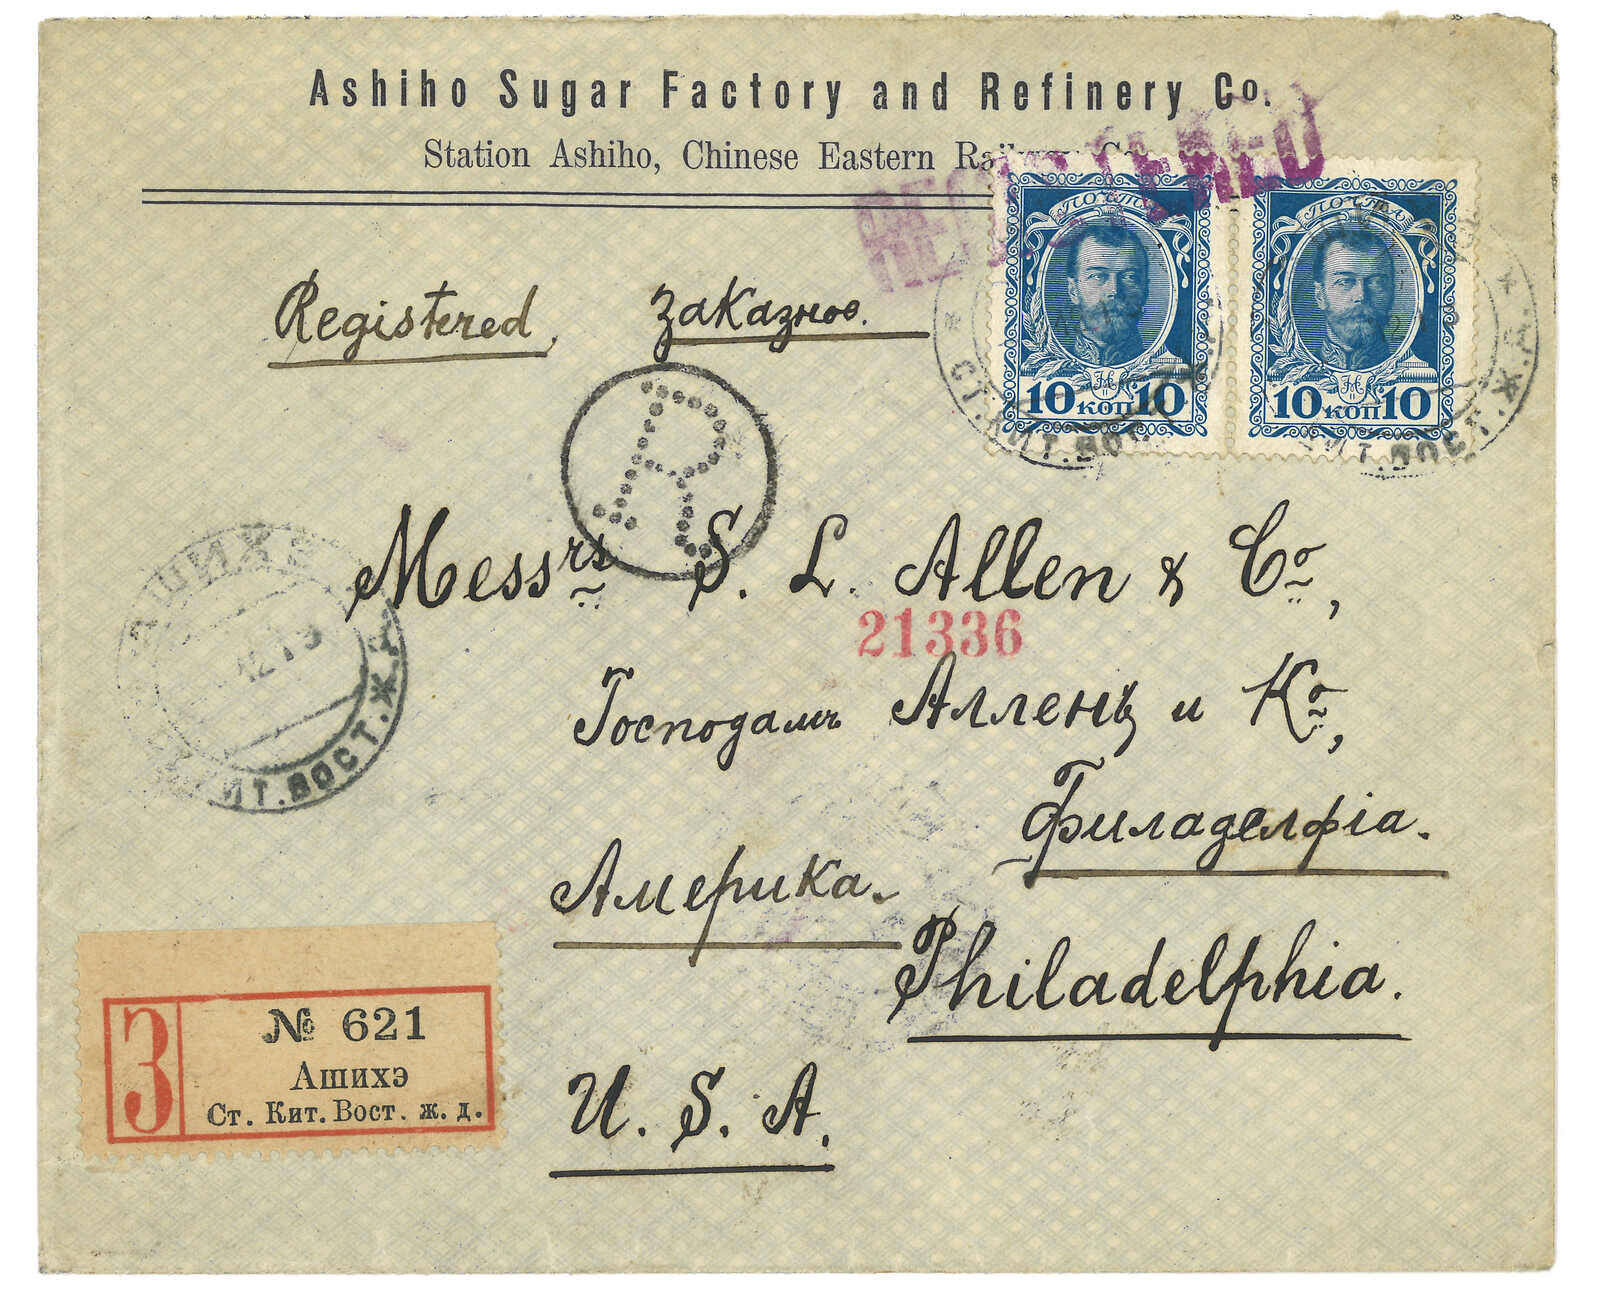 Ashiho Sugar Factory and Refinery Co.
Station Ashiho, Chinese Eastern Railway Co.
REGISTERED
ПОЧТА
ПОЧТА
10 КОП 10
10 КОП 10
Registered, Заказное.
R
Messrs S. L. Allen & Co,
21336
Господамъ Алленъ и Ко,
Филаделфіа.
Америка.
Philadelphia.
U. S. A.
АШИХЭ
12 1 3
КИТ. ВОСТ. Ж.
СТ. КИТ. ВОС
КИТ. ВОСТ. Ж.
З
№ 621
Ашихэ
Ст. Кит. Вост. ж. д.